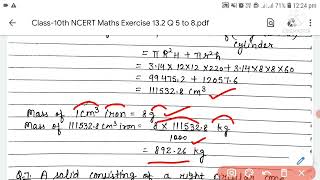 12:24 pm
Class-10th NCERT Maths Exercise 13.2 Q 5 to 8.pdf
cylinder
= πR²H + πr²h
= 3.14×12×12×220+3.14×8×8×60
= 99475.2 + 12057.6
= 111532.8 cm³
Mass of 1cm³ iron = 8g
Mass of 111532.8 cm³ iron = 8 × 111532.8 kg
1000
= 892.26 kg
Q.7. A solid consisting of a right circular cone